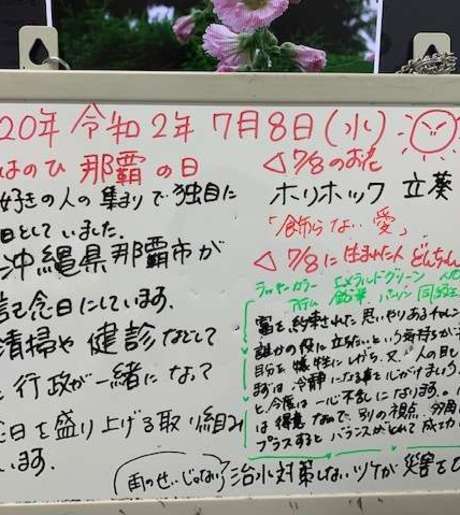 20年 令和2年 7月8日(水)
はのひ 那覇の日
好きの人の集まりで独自に
日としていました。
沖縄県那覇市が
記念日にしています。
清掃や健診などして
行政が一緒になって
念日を盛り上げる取り組み
います。
◁7/8のお花
ホリホック 立葵
「飾らない愛」
◁7/8に生まれた人 どんちゃん
ラッキーカラー エメラルドグリーン
アイテム 鉛筆 パソコン
富を約束された思いやりあるチャレン
誰かの役に立ちたいという気持ちが
自分を犠牲にしがち、又、人の目
まずは冷静になる事を心がけましょう
と、今度は一心不乱になります。
は得意なので、別の視点、多角
プラスするとバランスがとれて成功
雨のせいじゃない 治水対策しないツケが災害を